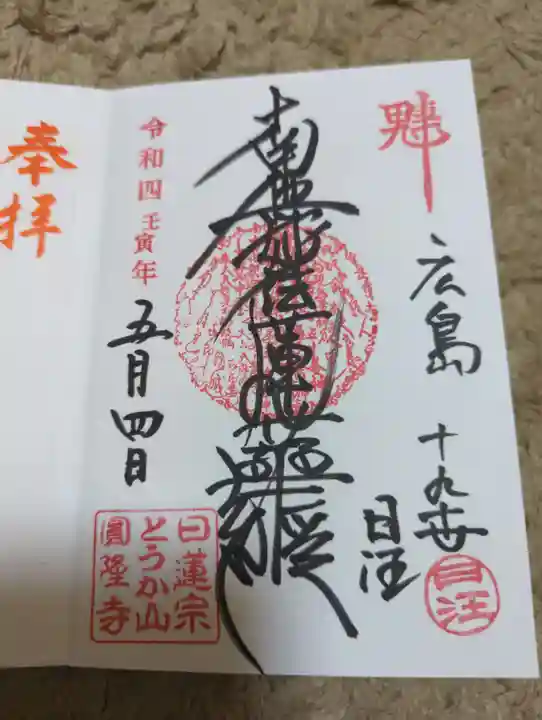 広島
十九世
日汪
日汪
南無妙法蓮華経
授与
令和四壬寅年
五月四日
日蓮宗
とうか山
圓隆寺
奉拝